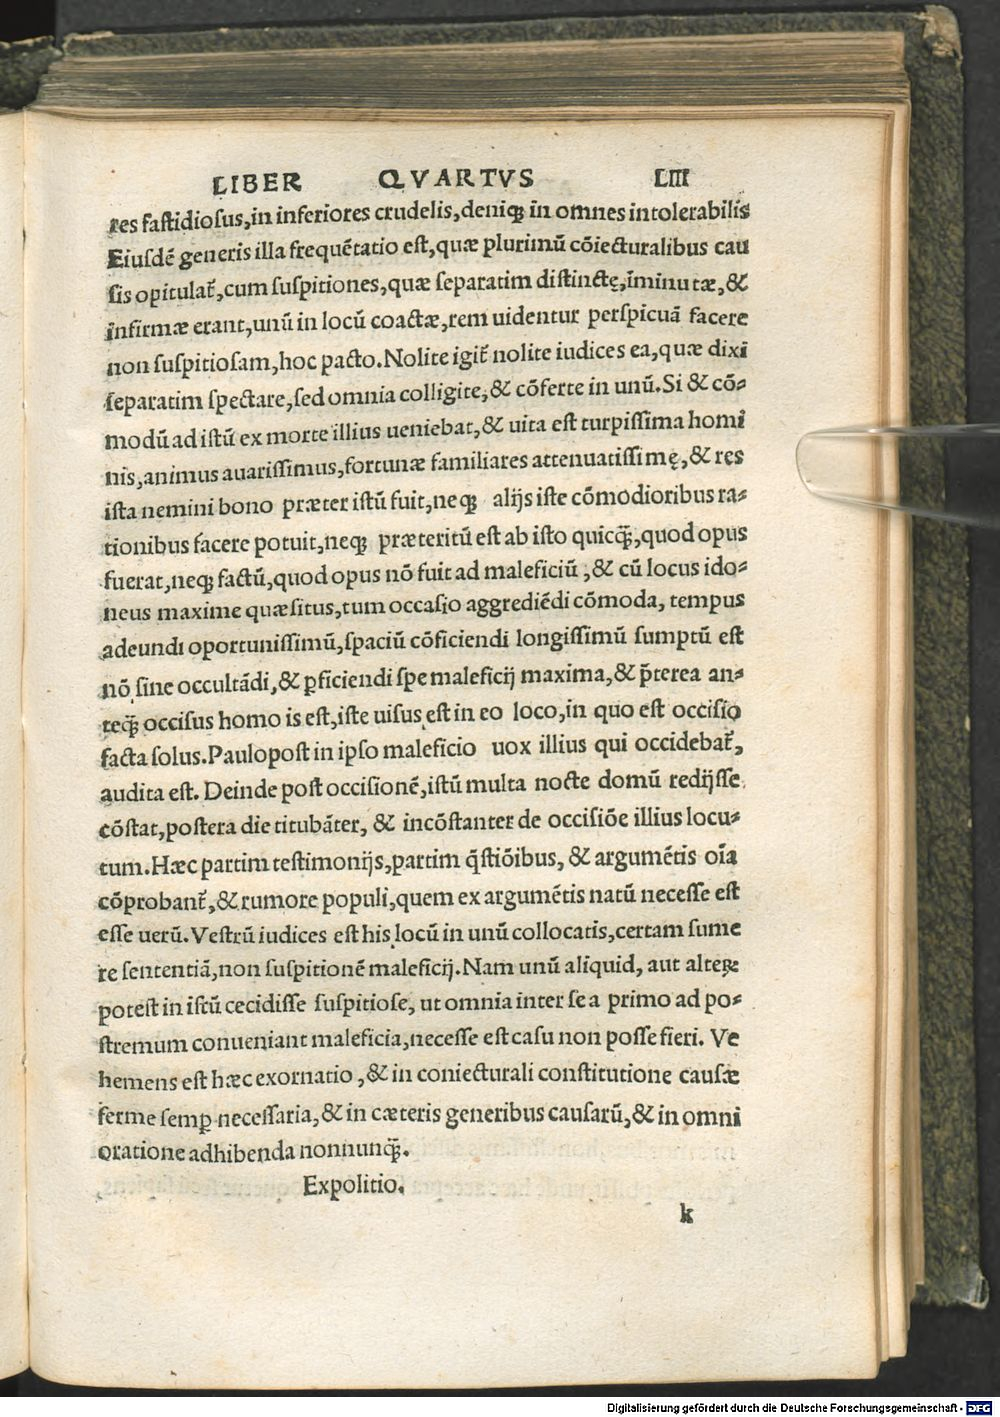 LIBER QVARTVS LIII
res fastidiosus,in inferiores crudelis,deniqꝫ in omnes intolerabilis
Eiusdē generis illa frequētatio est,quæ plurimū cōiecturalibus cau
sis opitulat᷑,cum suspitiones,quæ separatim distinctę,īminutæ,&
infirmæ erant,unū in locū coactæ,rem uidentur perspicuā facere
non suspitiosam,hoc pacto.Nolite igit᷑ nolite iudices ea,quæ dixi
separatim spectare,sed omnia colligite,& cōferte in unū.Si & cō⸗
modū ad istū ex morte illius ueniebat,& uita est turpissima homi
nis,animus auarissimus,fortunæ familiares attenuatissimę,& res
ista nemini bono præter istū fuit,neqꝫ alijs iste cōmodioribus ra⸗
tionibus facere potuit,neqꝫ præteritū est ab isto quicq̄ꝫ,quod opus
fuerat,neqꝫ factū,quod opus nō fuit ad maleficiū ,& cū locus ido⸗
neus maxime quæsitus,tum occasio aggrediēdi cōmoda, tempus
adeundi oportunissimū,spaciū cōficiendi longissimū sumptū est
nō sine occultādi,& ꝑficiendi spe maleficij maxima,& p̄terea an⸗
teq̄ꝫ occisus homo is est,iste uisus est in eo loco,in quo est occisio
facta solus.Paulopost in ipso maleficio uox illius qui occidebat᷑,
audita est. Deinde post occisionē,istū multa nocte domū redijsse
cōstat,postera die titubāter, & incōstanter de occisiōe illius locu⸗
tum.Hæc partim testimonijs,partim q̄stiōibus, & argumētis oīa
cōprobant᷑,& rumore populi,quem ex argumētis natū necesse est
esse uerū.Vestrū iudices est his locū in unū collocatis,certam sume
re sententiā,non suspitionē maleficij.Nam unū aliquid, aut alteꝝ
potest in istū cecidisse suspitiose, ut omnia inter se a primo ad po⸗
stremum conueniant maleficia,necesse est casu non posse fieri. Ve
hemens est hæc exornatio ,& in coniecturali constitutione causæ
ferme semꝑ necessaria,& in cæteris generibus causarū,& in omni
oratione adhibenda nonnunq̄ꝫ.
Expolitio.
k
Digitalisierung gefördert durch die Deutsche Forschungsgemeinschaft - DFG